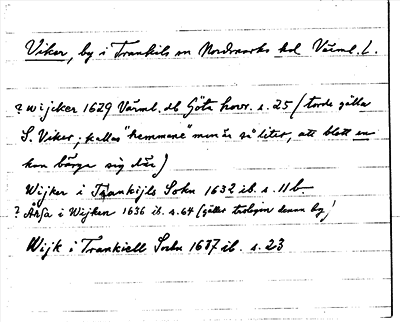 Viker, by i Trankils sn Nordmarks hd Värml. l.
? wijcker 1629 Värml. db Göta hovr. s. 25 (torde gälla
S. Viker; kallas "hemmene" men är så liter, att blott en
kan bärga sig där)
Wijker i Trankijls Sokn 1632 ib. s. 11 b.
? Åsa i Wijken 1636 ib. s. 64 (gäller troligen denna by)
Wijk i Trankiell Sochn 1687 ib. s. 23